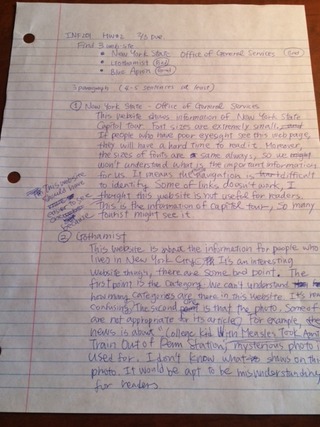 INF201 HW#2 7/3 Due.
Find 3 web site
• New York State Office of General Services
• Gothamist
• Blue Apron
3 paragraph (4-5 sentences at least)
① New York State - Office of General Services
This website shows information of New York State
Capitol Tour. Font sizes are extremely small,
If people who have poor eyesight see this web page,
they will have a hard time to read it. However,
the sizes of fonts are same always, so we
won't understand what is the important information
for us. It means the navigation is difficult
to identify. Some of links doesn't work, I
thought this website is not useful for readers.
This is the information of Capitol tour, so many
tourist might see it.
This website
should have
because
② Gothamist
This website is about the information for people who
lives in New York City. It's an interesting
website things, there are some bad point. The
first point is the Category. We can't understand
how many categories are there in this website. It's
confusing. The second is that the photo. Some of
are not appropriate for its article. For example, the
news is about "College Kid With Measles Took
Train Out of Penn Station," mysterious photo
Used for. I don't know what shows on this
photo. It would be apt to be misunderstanding
for readers.